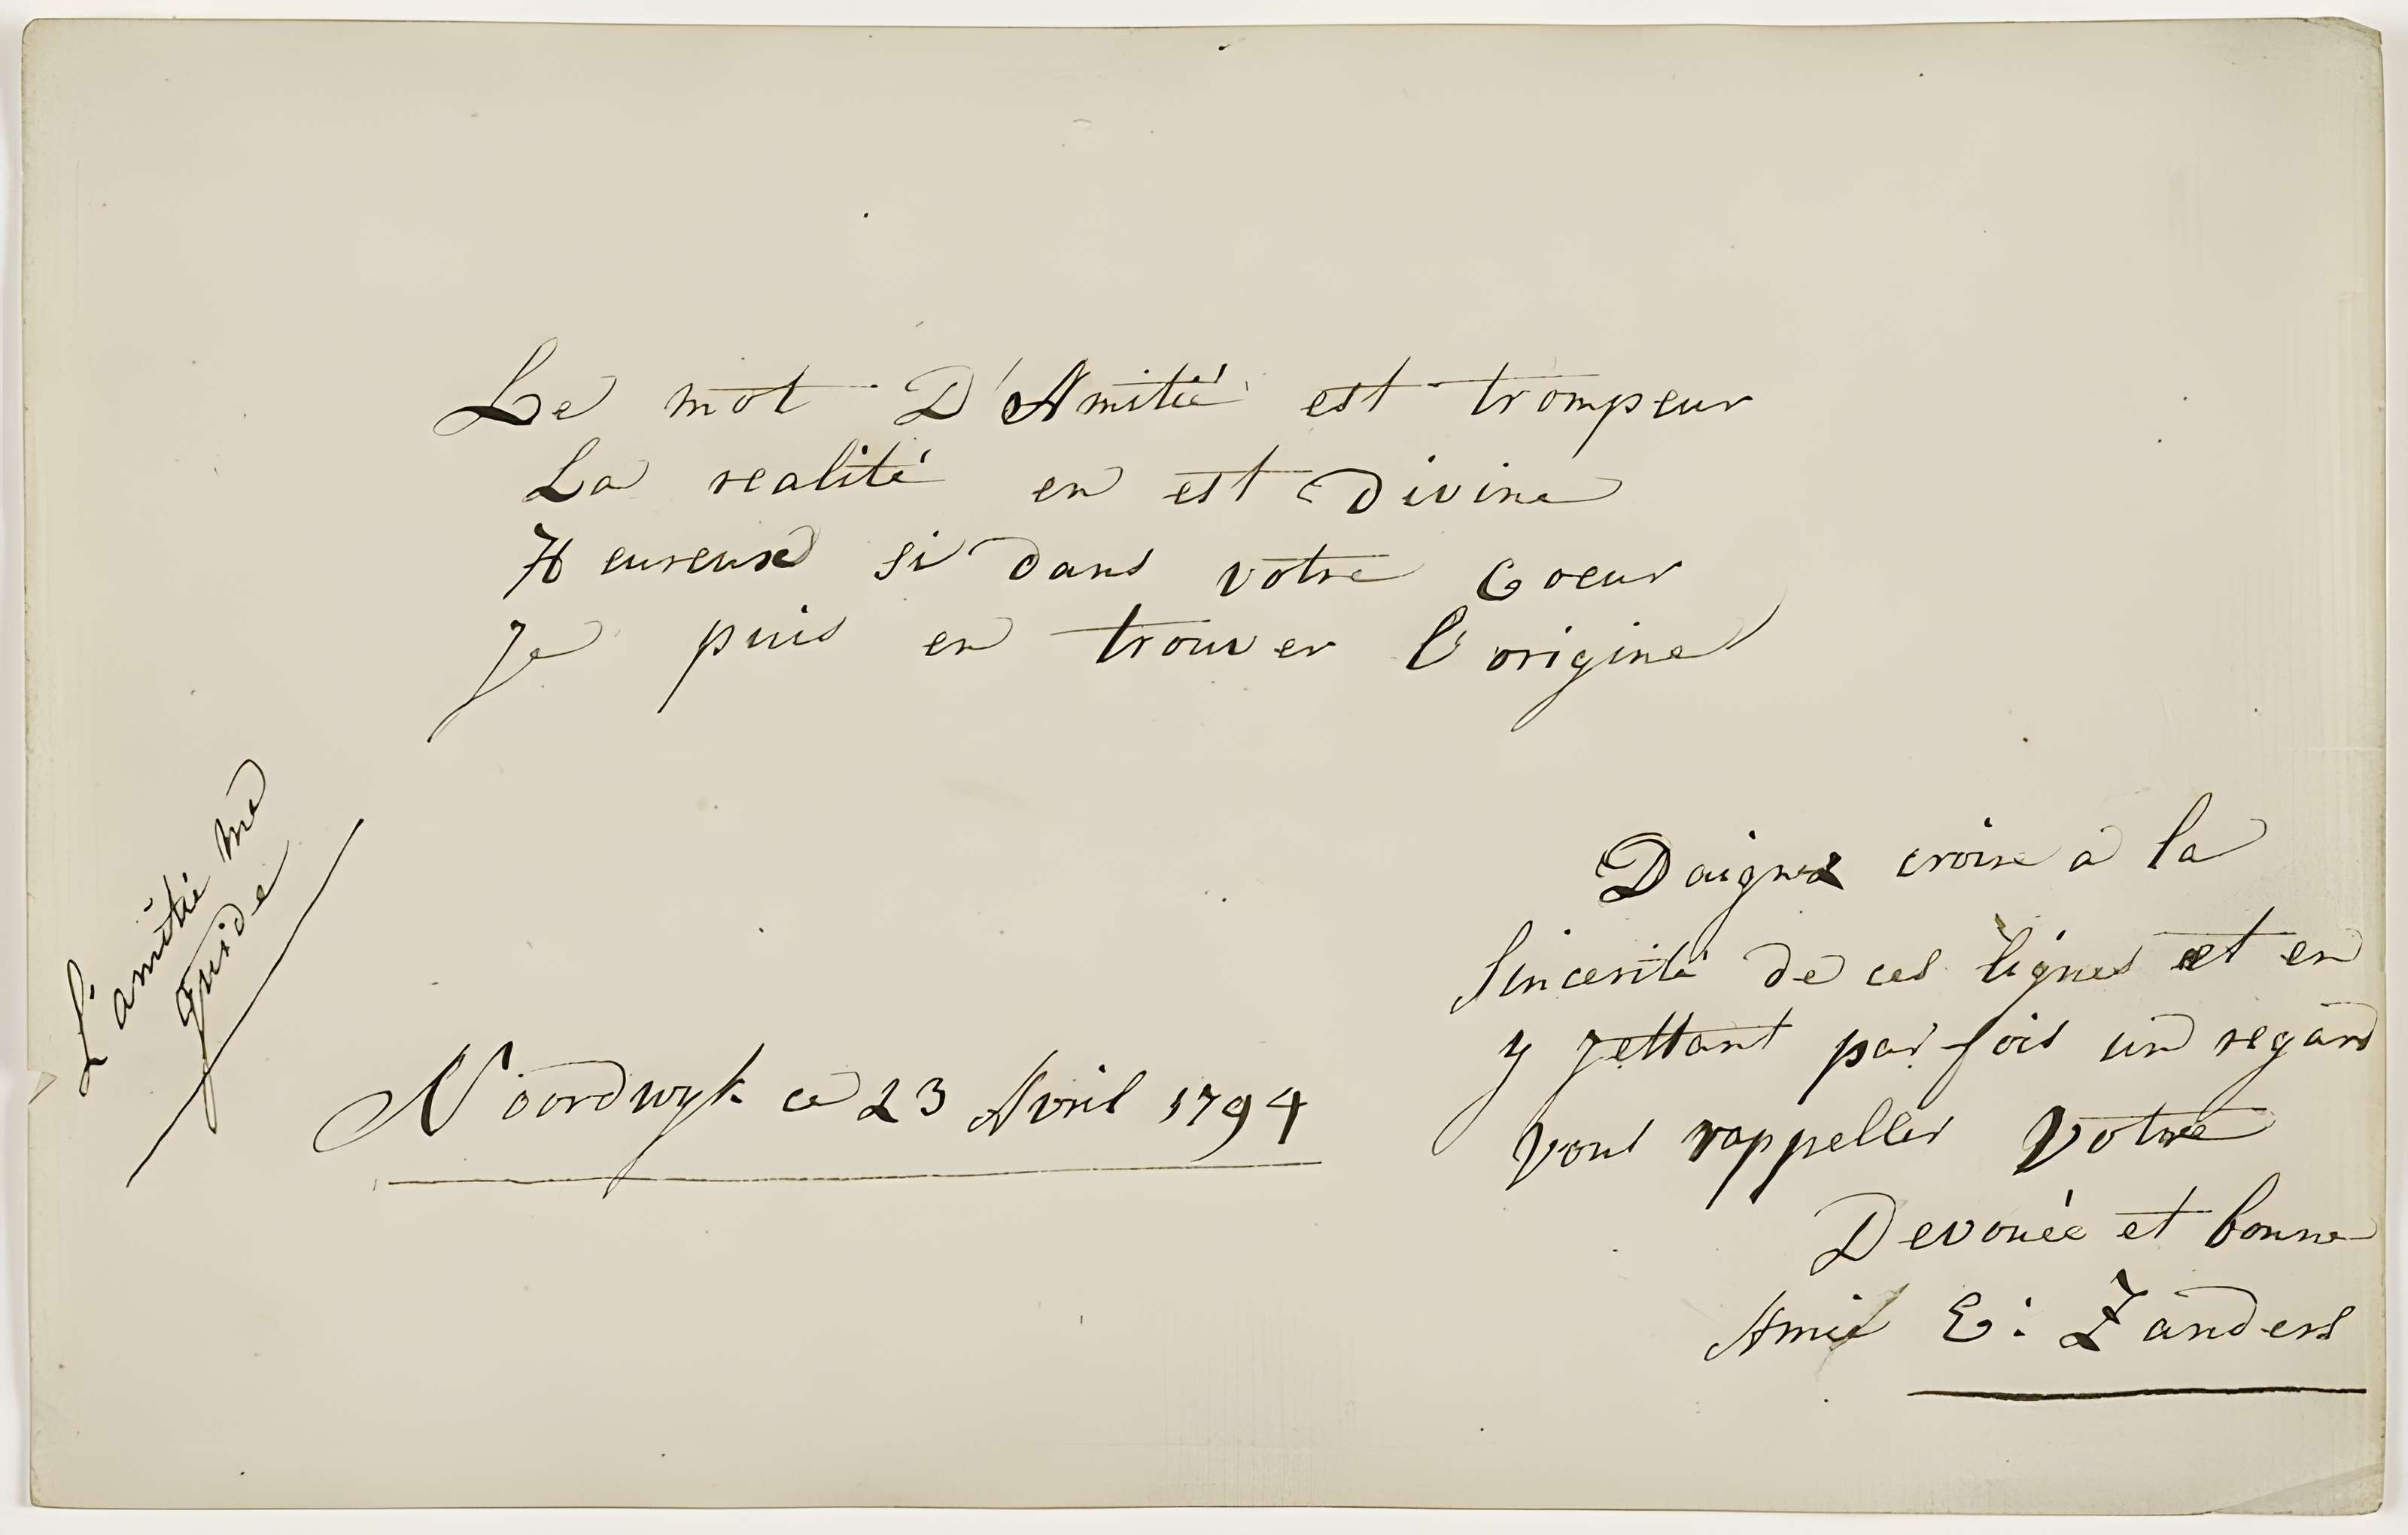 Le mot D'Amitié est trompeur
La realité en est Divine
Heureuse si dans votre Coeur
Je puis en trouver l'origine
L'amitié me
guide
Noordwyk ce 23 Avril 1794
Daignez croire a la
Sincerité de ces lignes et en
y jettant par fois un regard
vous rappeller Votre
Devouée et bonne
Amie E: Zanders